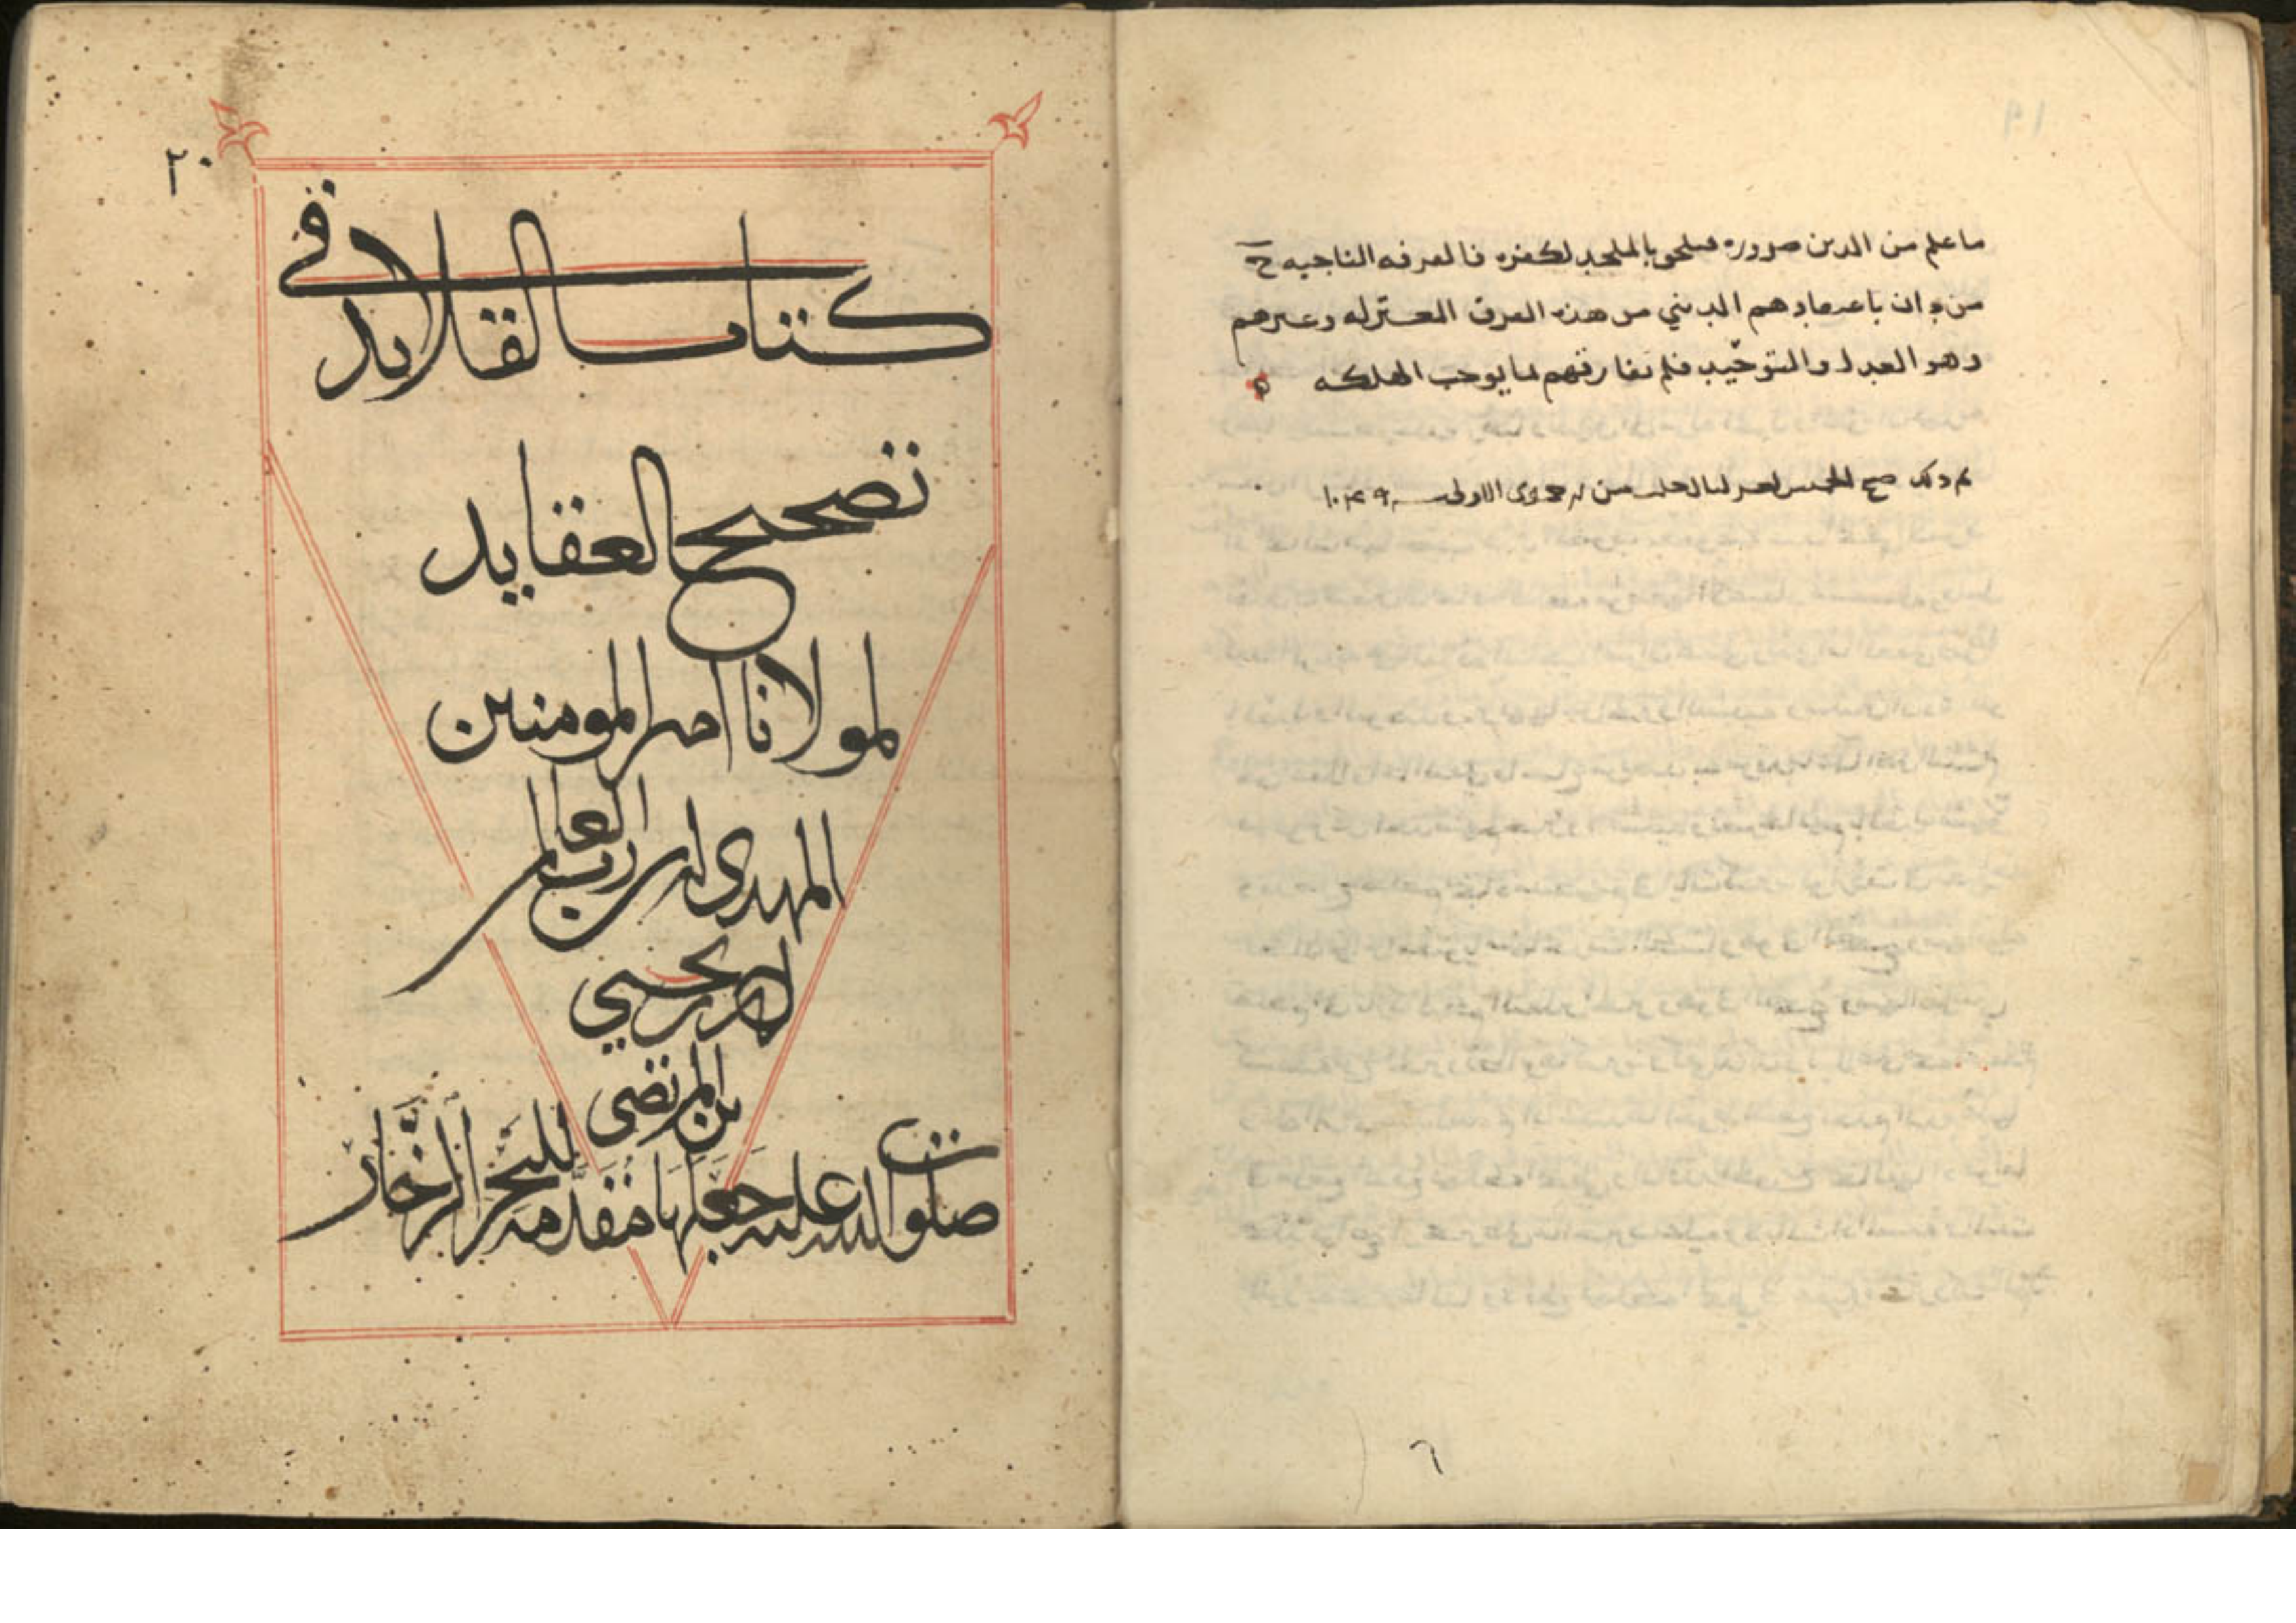 ما علم من الدين ضرورة فيلحق بالملحد لكفره فالفرقه الناجيه ح
من دان باعتقادهم الديني من هذه الفرق المعتزله وغيرهم
وهو العدل والتوحيد فلم نفارقهم لما يوجب الهلكه
تم ذلك الخميس من جمدى الاولى سنه
٦
٢٠
كتاب القلايد في
تصحيح العقايد
لمولانا امير المومنين
المهدي لدين رب العالمين
احمد بن يحيى
بن المرتضى
صلوات الله عليه جعلها مقدمه للبحر الزخار